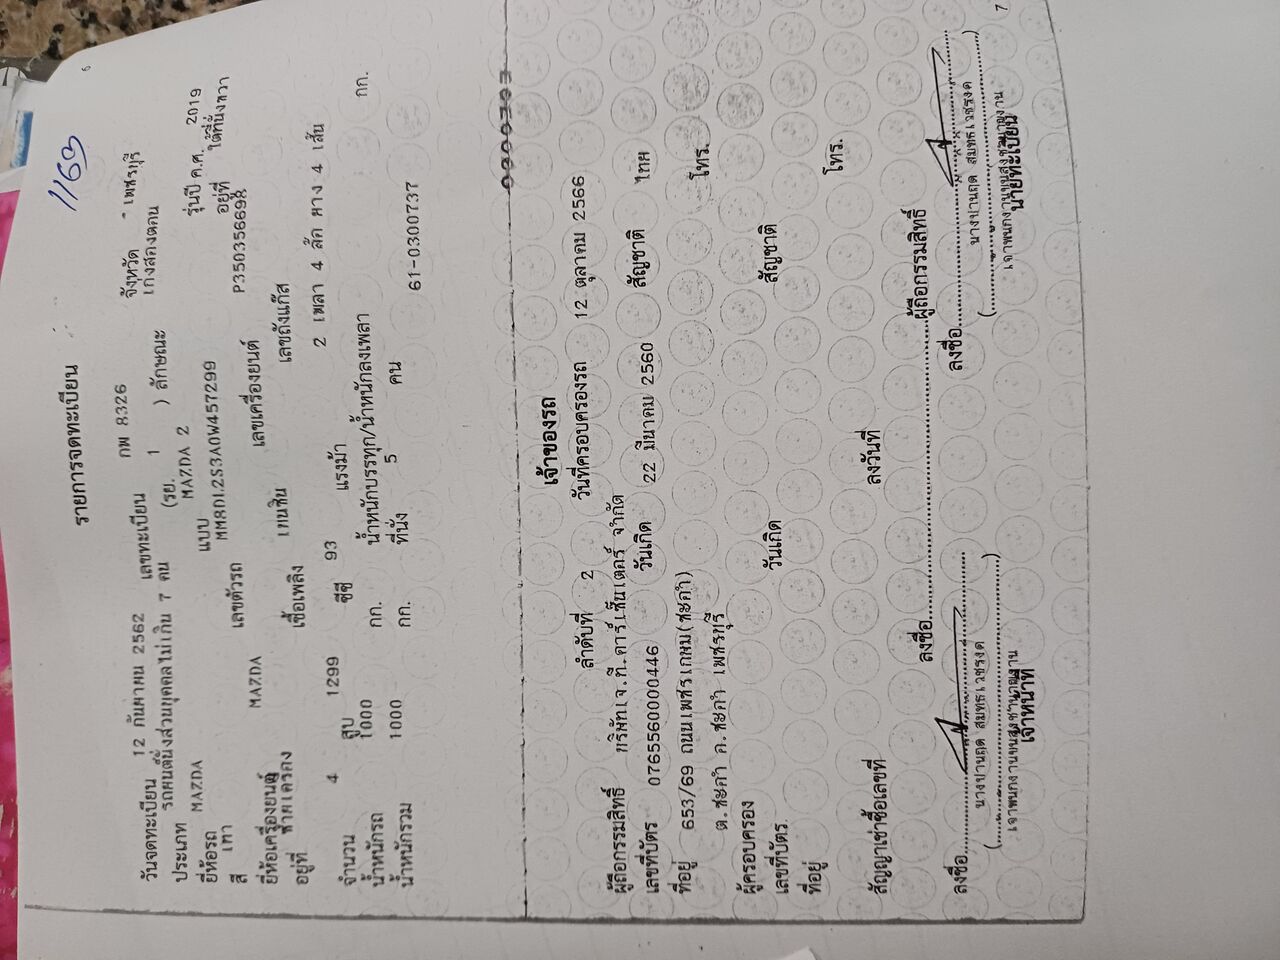 6
1163
รายการจดทะเบียน
วันจดทะเบียน 12 กันยายน 2562 เลขทะเบียน กพ 8326 จังหวัด เพชรบุรี
ประเภท รถยนต์นั่งส่วนบุคคลไม่เกิน 7 คน (รย. 1 ) ลักษณะ เก๋งสองตอน
ยี่ห้อรถ MAZDA แบบ MAZDA 2 รุ่นปี ค.ศ. 2019
สี เทา เลขตัวรถ MM8DL2S3A0W457299 อยู่ที่ ใต้ที่นั่งขวา
ยี่ห้อเครื่องยนต์ MAZDA เลขเครื่องยนต์ P350356698
อยู่ที่ ซ้ายเครื่อง เชื้อเพลิง เบนซิน เลขถังแก๊ส
จำนวน 4 สูบ 1299 ซีซี 93 แรงม้า 2 เพลา 4 ล้อ ยาง 4 เส้น
น้ำหนักรถ 1000 กก. น้ำหนักบรรทุก/น้ำหนักลงเพลา กก.
น้ำหนักรวม 1000 กก. ที่นั่ง 5 คน 61-0300737
เจ้าของรถ
ลำดับที่ 2 วันที่ครอบครองรถ 12 ตุลาคม 2566
ผู้ถือกรรมสิทธิ์ บริษัทเจ.ที.คาร์เซ็นเตอร์ จำกัด
เลขที่บัตร 0765560000446 วันเกิด 22 มีนาคม 2560 สัญชาติ ไทย
ที่อยู่ 653/69 ถนนเพชรเกษม(ชะอำ) โทร.
ต.ชะอำ อ.ชะอำ เพชรบุรี
ผู้ครอบครอง
เลขที่บัตร วันเกิด สัญชาติ
ที่อยู่ โทร.
สัญญาเช่าซื้อเลขที่ ลงวันที่
ลงชื่อ ผู้ถือกรรมสิทธิ์
ลงชื่อ ลงชื่อ
เจ้าพนักงานขนส่งชำนาญงาน เจ้าพนักงานขนส่งชำนาญงาน
เจ้าหน้าที่ นายทะเบียน
7